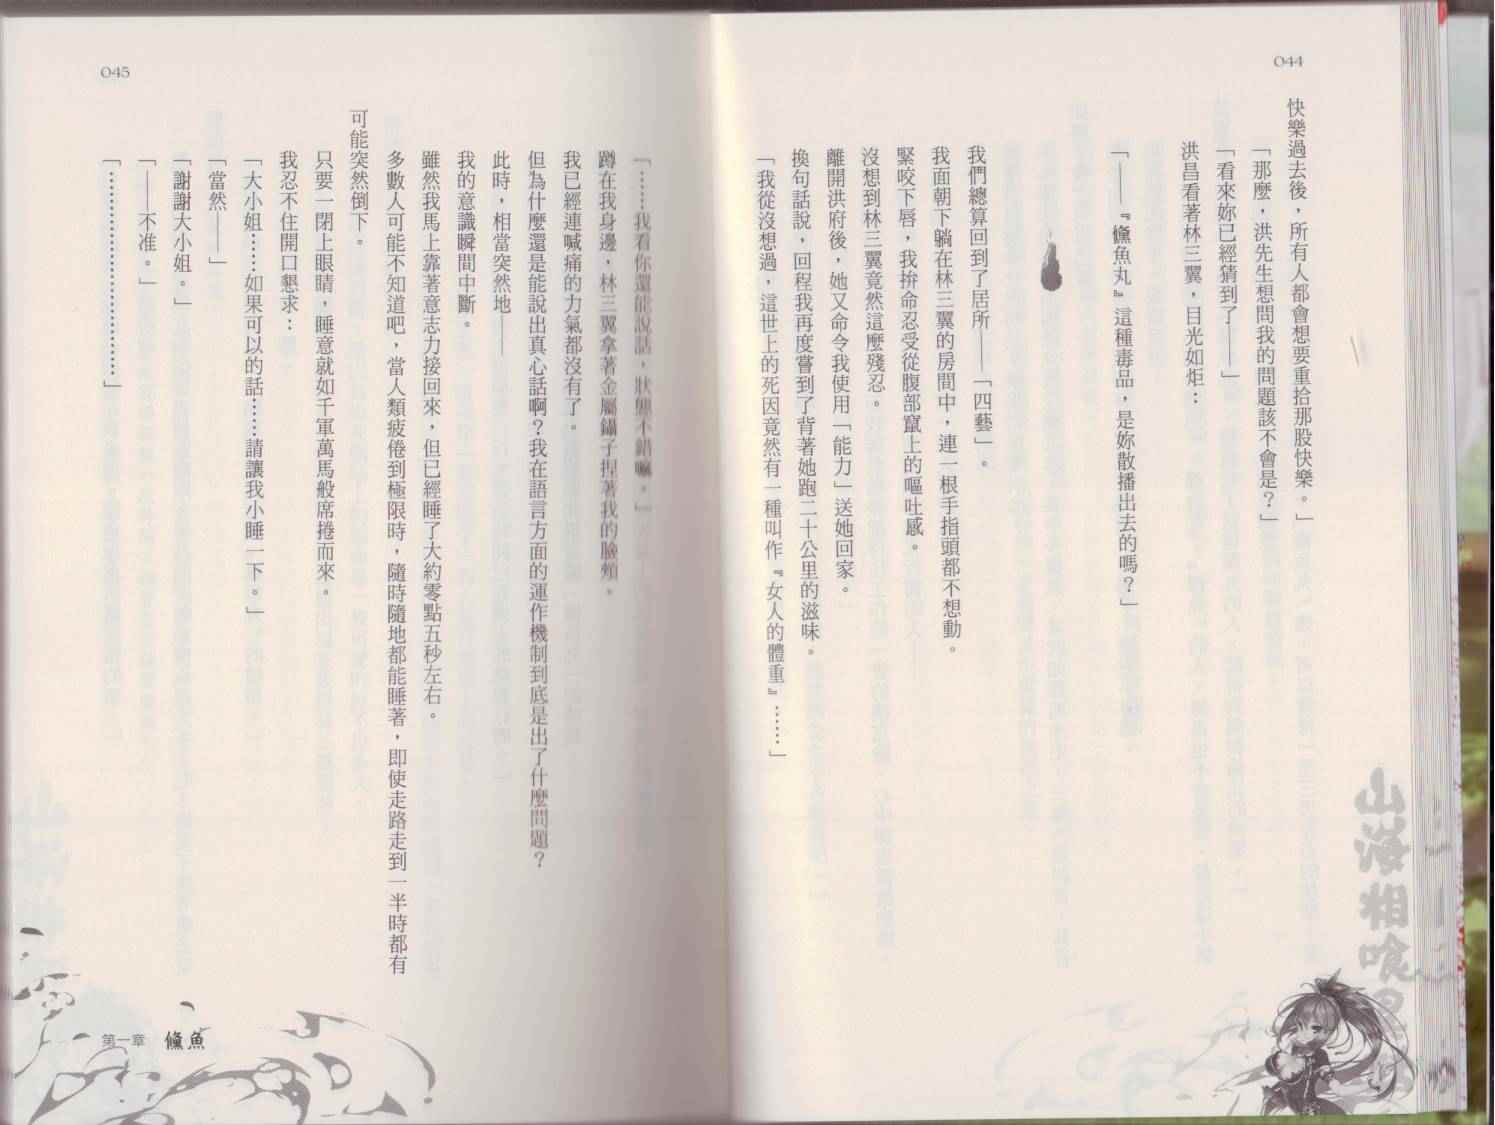 044
快樂過去後，所有人都會想要重拾那股快樂。」
「那麼，洪先生想問我的問題該不會是？」
「看來妳已經猜到了——」
洪昌看著林三翼，目光如炬：
「——『鯈魚丸』這種毒品，是妳散播出去的嗎？」
我們總算回到了居所——「四藝」。
我面朝下躺在林三翼的房間中，連一根手指頭都不想動。
緊咬下唇，我拚命忍受從腹部竄上的嘔吐感。
沒想到林三翼竟然這麼殘忍。
離開洪府後，她又命令我使用「能力」送她回家。
換句話說，回程我再度嘗到了背著她跑二十公里的滋味。
「我從沒想過，這世上的死因竟然有一種叫作『女人的體重』……」
山海相喰
045
「……我看你還能說話，狀態不錯嘛。」
蹲在我身邊，林三翼拿著金屬鑷子捏著我的臉頰。
我已經連喊痛的力氣都沒有了。
但為什麼還是能說出真心話啊？我在語言方面的運作機制到底是出了什麼問題？
此時，相當突然地——
我的意識瞬間中斷。
雖然我馬上靠著意志力接回來，但已經睡了大約零點五秒左右。
多數人可能不知道吧，當人類疲倦到極限時，隨時隨地都能睡著，即使走路走到一半時都有
可能突然倒下。
只要一閉上眼睛，睡意就如千軍萬馬般席捲而來。
我忍不住開口懇求：
「大小姐……如果可以的話……請讓我小睡一下。」
「當然——」
「謝謝大小姐。」
「——不准。」
「…………………………」
第一章 鯈魚